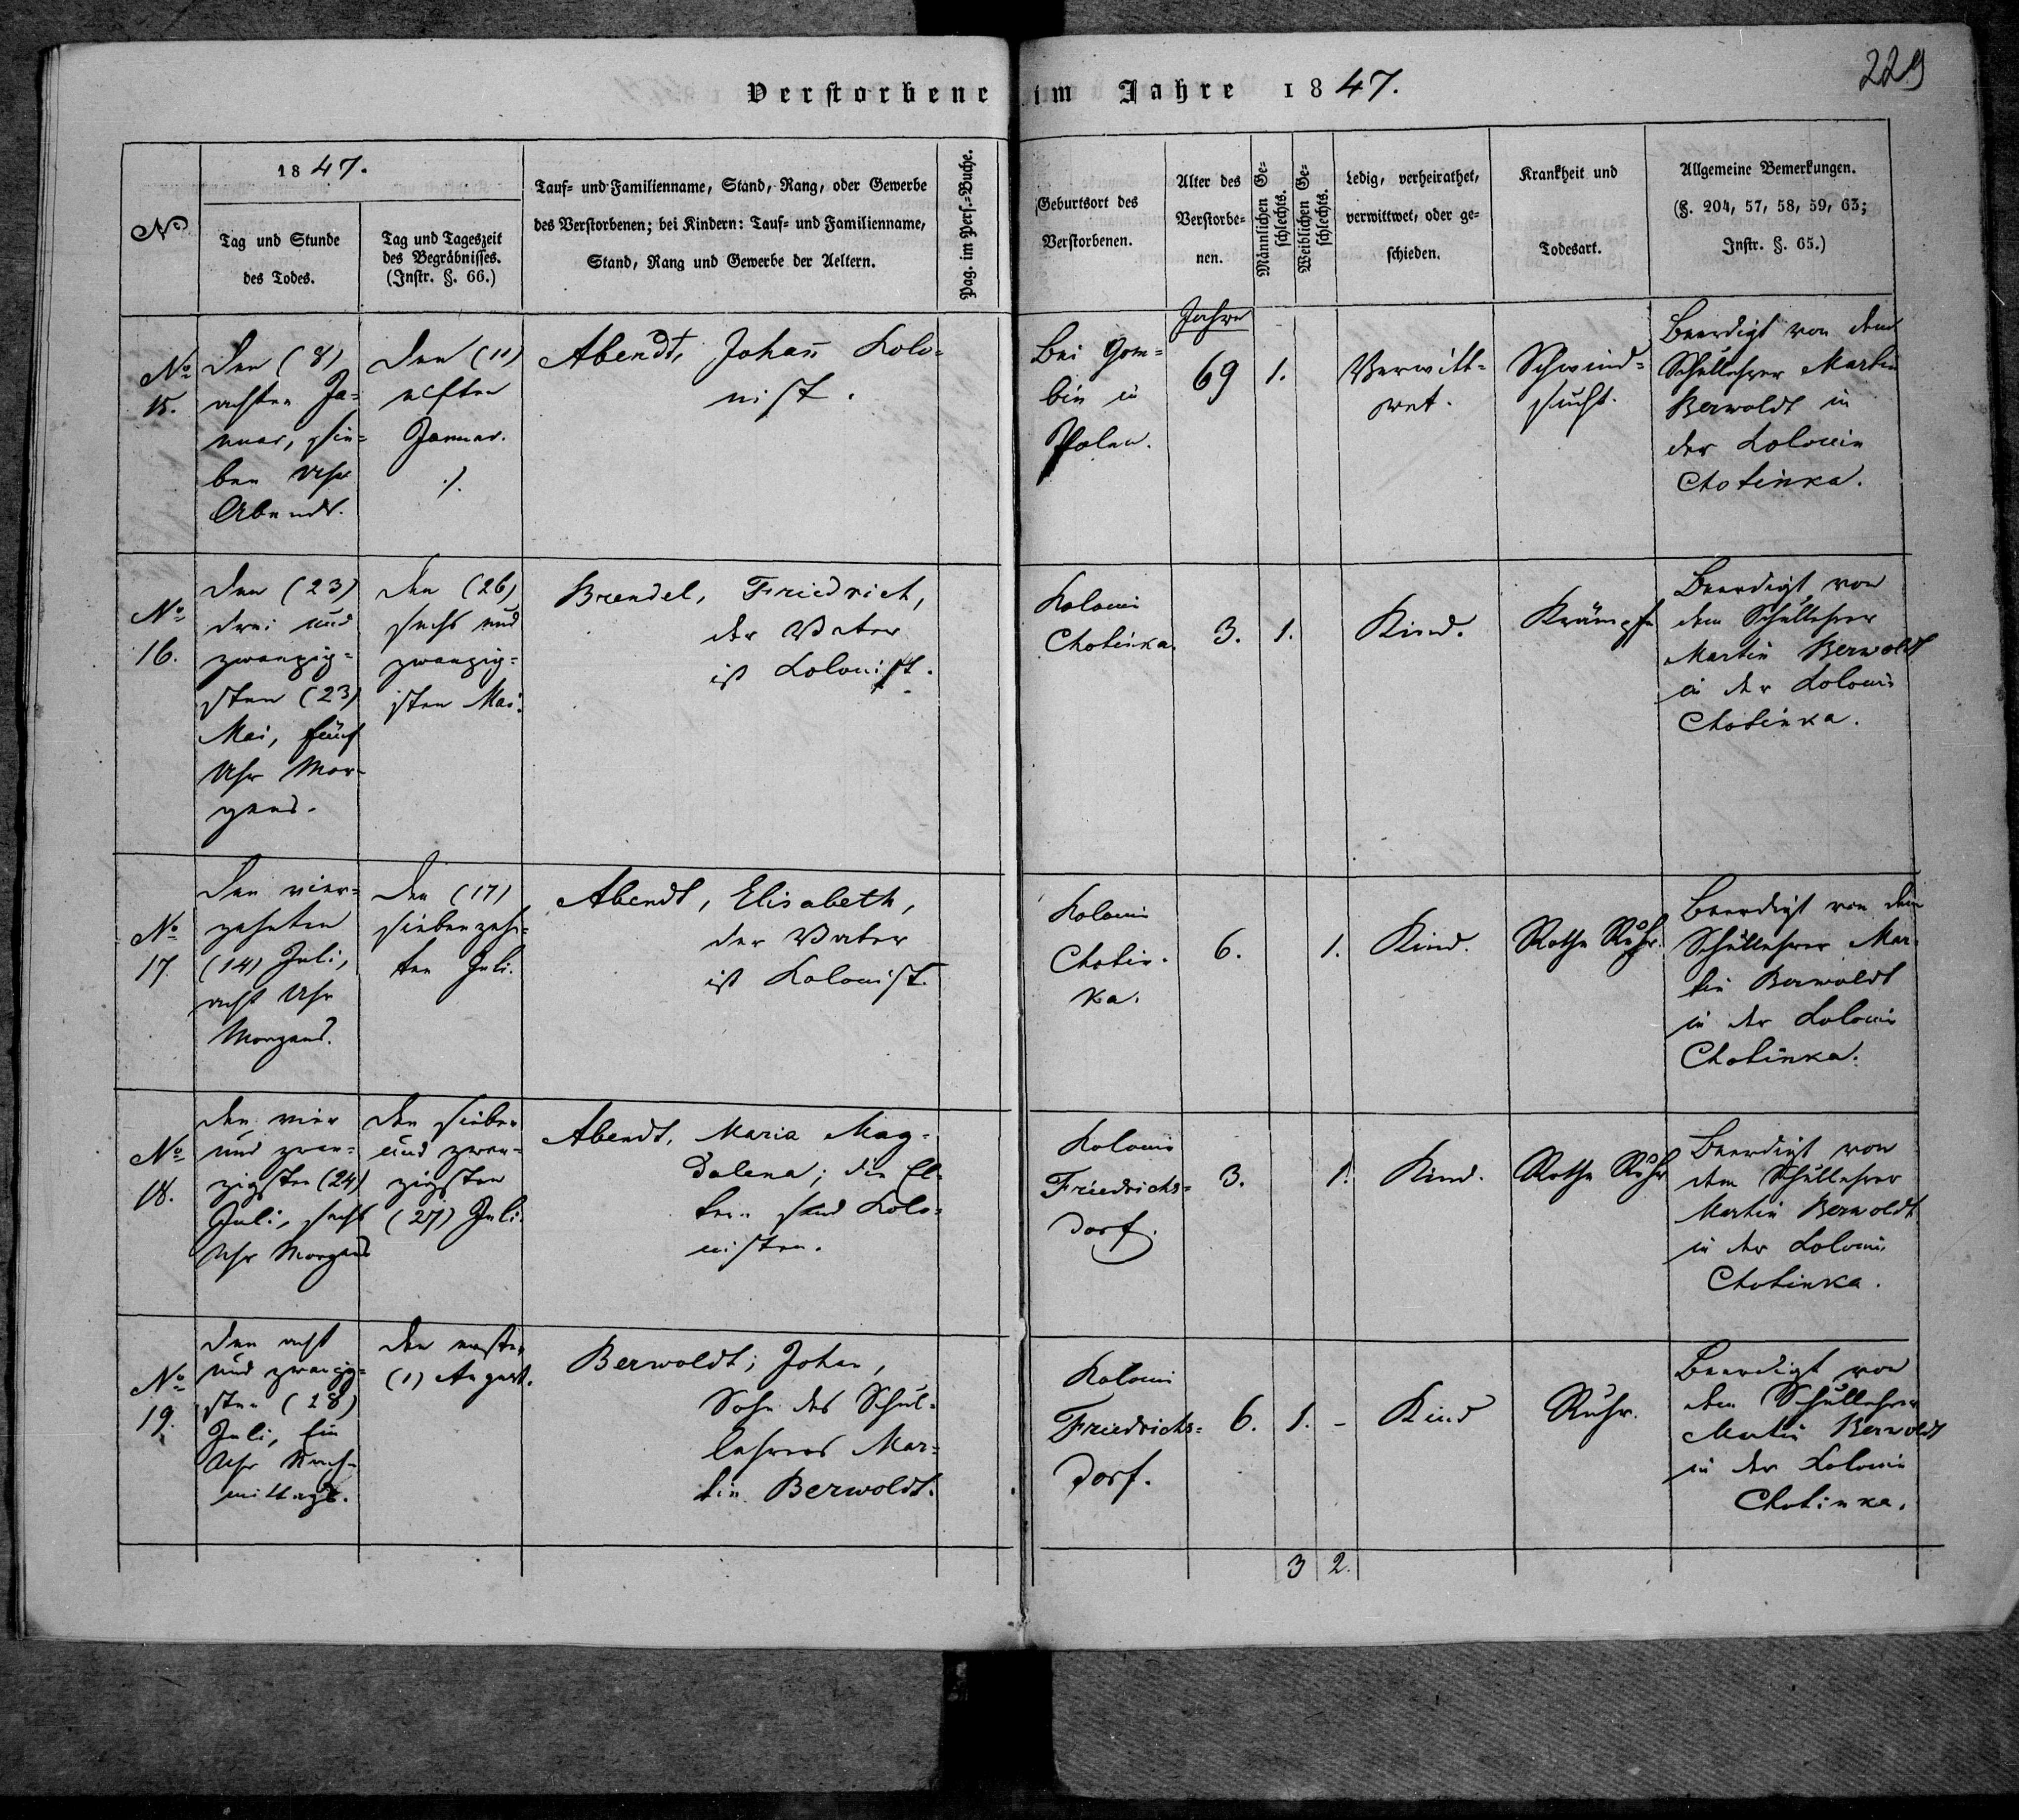 229
Verstorbene im Jahre 1847.
No
1847.
Tag und Stunde
des Todes.
Tag und Tageszeit
des Begräbnisses.
(Instr. §. 66.)
Tauf- und Familienname, Stand, Rang, oder Gewerbe
des Verstorbenen; bei Kindern: Tauf- und Familienname,
Stand, Rang und Gewerbe der Aeltern.
Pag. im Pers.-Buche.
Geburtsort des
Verstorbenen.
Alter des
Verstorbe-
nen.
Männlichen Ge-
schlechts.
Weiblichen Ge-
schlechts.
Ledig, verheirathet,
verwittwet, oder ge-
schieden.
Krankheit und
Todesart.
Allgemeine Bemerkungen.
(§. 204, 57, 58, 59, 63;
Instr. §. 65.)
No
15.
Den (8)
achten Ja-
nuar, sie-
ben Uhr
Abends.
Den (11)
elften
Januar.
./.
Abendt, Johan̄ Kolo-
nist.
Bei Gom-
bin in
Polen.
Jahre
69
1.
Verwitt-
wet.
Schwind-
sucht.
Beerdigt von dem
Schullehrer Martin
Berwoldt in
der Kolonie
Chotinka.
No
16.
Den (23)
drei und
zwanzig-
sten (23)
Mai, fünf
Uhr Mor-
gens.
Den (26)
sechs und
zwanzig-
sten Mai.
Brendel, Friedrich,
der Vater
ist Kolonist.
Kolonie
Chotinka.
3.
1.
Kind.
Krämpfe
Beerdigt von
dem Schullehrer
Martin Berwoldt
in der Kolonie
Chotinka.
No
17.
Den vier-
zehnten
(14) Juli,
acht Uhr
Morgens.
Den (17)
siebenzehn-
ten Juli.
Abendt, Elisabeth,
der Vater
ist Kolonist.
Kolonie
Chotin-
ka.
6.
1.
Kind.
Rothe Ruhr.
Beerdigt von dem
Schullehrer Mar-
tin Berwoldt
in der Kolonie
Chotinka.
No
18.
Den vier
und zwan-
zigsten (24)
Juli, sechs
Uhr Morgens
Den sieben
und zwan-
zigsten
(27) Juli.
Abendt, Maria Mag-
dalena; die El-
tern sind Kolo-
nisten.
Kolonie
Friedrichs-
dorf.
3.
1.
Kind.
Rothe Ruhr
Beerdigt von
dem Schullehrer
Martin Berwoldt
in der Kolonie
Chotinka.
No
19.
Den acht
und zwanzig-
sten (28)
Juli, Ein
Uhr Nach-
mittags.
Den ersten
(1) August.
Berwoldt, Johan,
Sohn des Schul-
lehrers Mar-
tin Berwoldt.
Kolonie
Friedrichs-
dorf.
6.
1. -
Kind
Ruhr.
Beerdigt von
dem Schullehrer
Martin Berwoldt
in der Kolonie
Chotinka.
3
2.